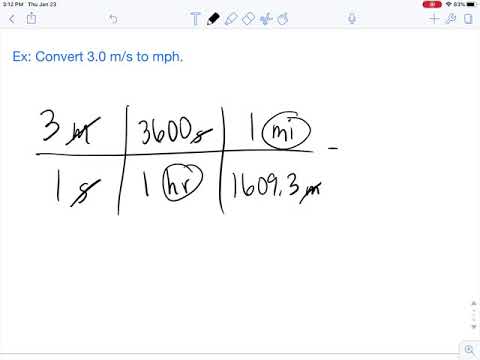 3:12 PM Thu Jan 23
83%
Ex: Convert 3.0 m/s to mph.
3 m 3600 s 1 mi =
1 s 1 hr 1609.3 m